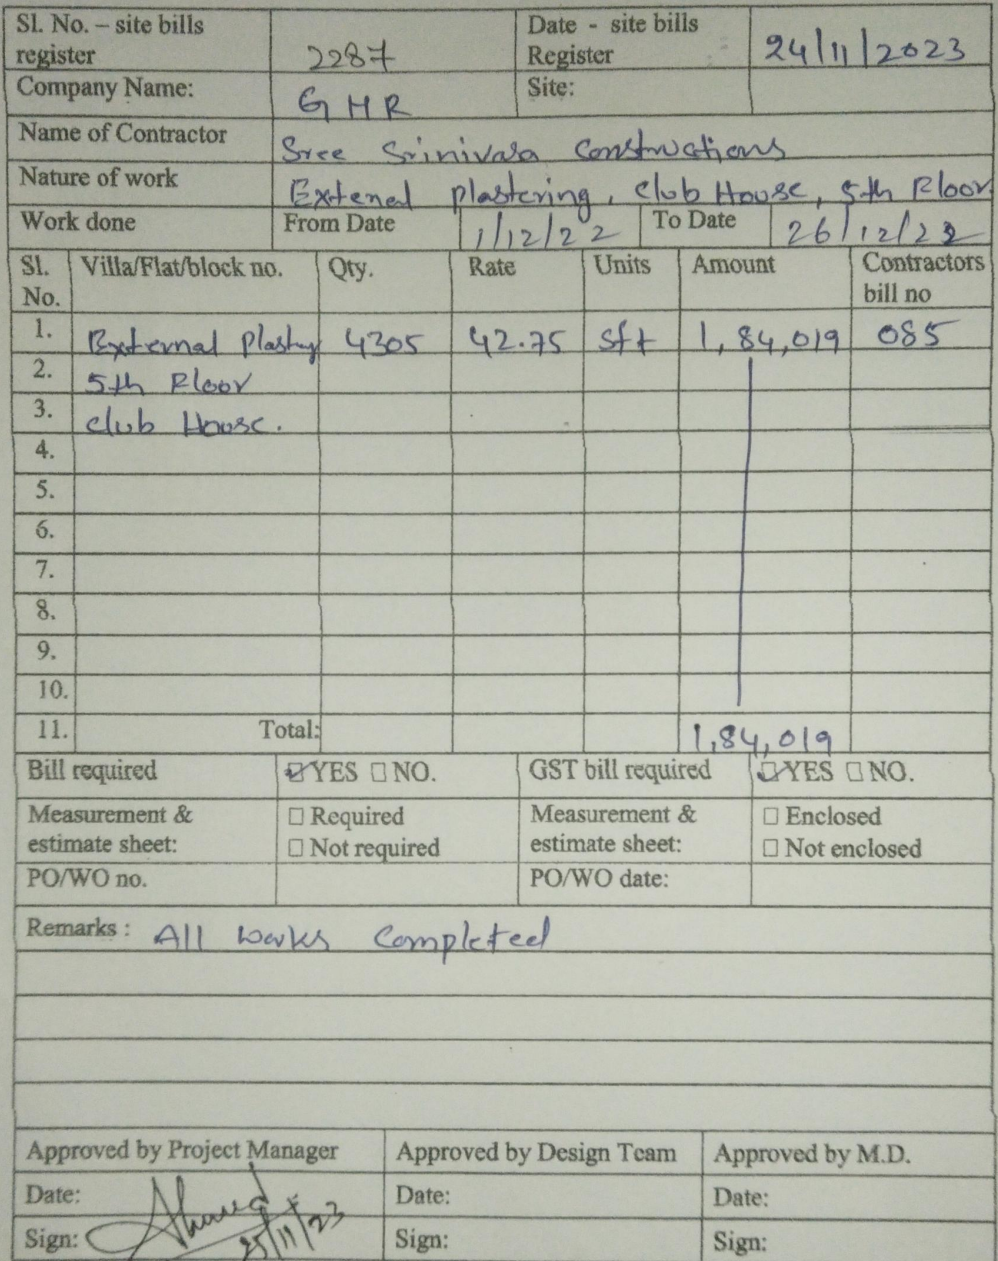 Sl. No. – site bills register 2287 Date - site bills Register 24/11/2023
Company Name: GHR Site:
Name of Contractor Sree Srinivasa Constructions
Nature of work Extenal plastering, Club House, 5th Floor
Work done From Date 1/12/22 To Date 26/12/22
Sl. No. Villa/Flat/block no. Qty. Rate Units Amount Contractors bill no
1. External Plastng 4305 42.75 sft 1,84,019 085
2. 5th Floor
3. Club House.
4.
5.
6.
7.
8.
9.
10.
11. Total: 1,84,019
Bill required ☑YES ☐NO. GST bill required ☑YES ☐NO.
Measurement & estimate sheet: ☐ Required ☐ Not required Measurement & estimate sheet: ☐ Enclosed ☐ Not enclosed
PO/WO no. PO/WO date:
Remarks : All works Completed
Approved by Project Manager Approved by Design Team Approved by M.D.
Date: Date: Date:
Sign: 25/11/23 Sign: Sign: